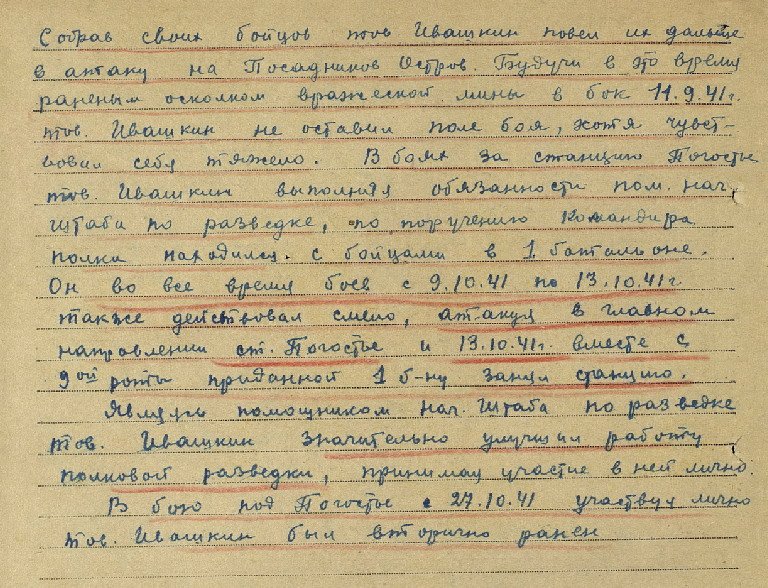 Собрав своих бойцов тов Ивашкин повел их дальше
в атаку на Посадников Остров. Будучи в это время
раненым осколком вражеской мины в бок 11.9.41г.
тов. Ивашкин не оставил поле боя, хотя чувст-
вовал себя тяжело. В боях за станцию Погостье
тов. Ивашкин выполняя обязанности пом. нач.
штаба по разведке, по поручению командира
полка находился с бойцами в 1 батальоне.
Он во все время боев с 9.10.41 по 13.10.41г
также действовал смело, атакуя в главном
направлении ст. Погостье и 13.10.41г. вместе с
9ой роты приданной 1 б-ну занял станцию.
Являясь помощником нач. штаба по разведке
тов. Ивашкин значительно улучшил работу
полковой разведки, принимая участие в ней лично.
В бою под Погостье с 27.10.41 участвуя лично
тов. Ивашкин был вторично ранен